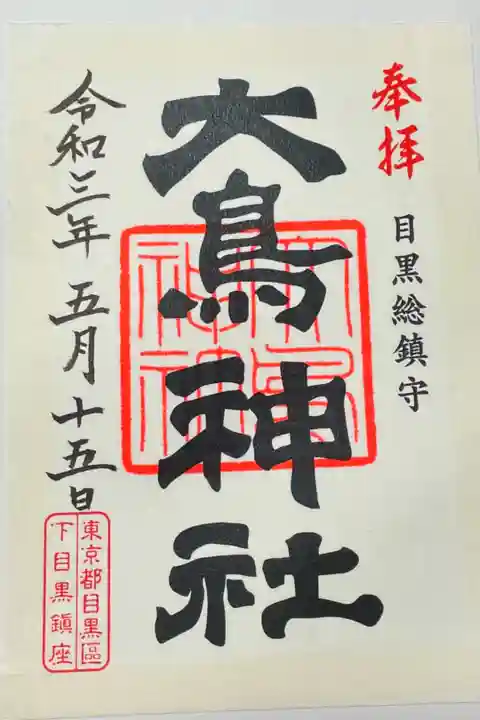 奉拝
目黒総鎮守
大鳥神社
令和三年五月十五日
東京都目黒區
下目黒鎮座